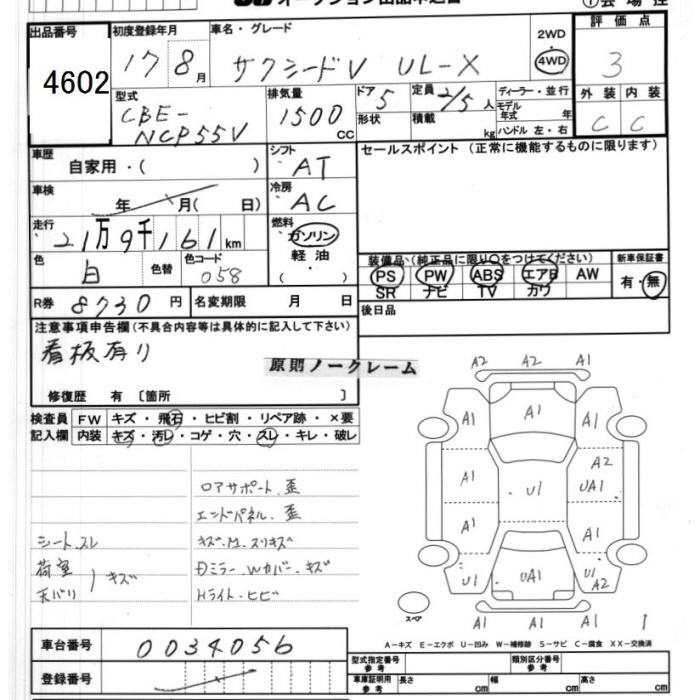 4602
出品番号 初度登録年月 車名・グレード 2WD 評価点
17 8月 サクシードV UL-X 4WD 3
型式 排気量 ドア 定員 ディーラー・並行 外装 内装
CBE- 1500 5 2/5人 モデル年式 年 C C
NCP55V CC 形状 積載 kg ハンドル 左・右
車歴 シフト セールスポイント (正常に機能するものに限ります)
自家用・( ) AT
車検 冷房
年 月( 日) AC
走行 燃料
21万9千161km ガソリン
色 色替 色コード 軽油
白 058 ( ・ )
装備品 (純正品に限り○をつけてください) 新車保証書
PS PW ABS エアB AW 有・無
SR ナビ TV カワ
R券 8730円 名変期限 月 日 後日品
注意事項申告欄(不具合内容等は具体的に記入して下さい)
看板有り
原則ノークレーム
修復歴 有 〔箇所 〕
検査員 FW キズ・飛石・ヒビ割・リペア跡・×要
記入欄 内装 キズ・汚レ・コゲ・穴・スレ・キレ・破レ
ロアサポート、歪
エンドパネル、歪
シート、スレ キズ、M、スリキズ
荷室 Dミラー Wカバー、キズ
天バリ キズ Hライト、ヒビ
A2 A2 A1
A1 A1 A1
A1 A2
U1 UA1
A1 A1
U1 UA1 U1
A2
スペア A1 A1 A1
A−キズ E−エクボ U−凹み W−補修跡 S−サビ C−腐食 XX−交換済
車台番号 0034056
型式指定番号 参考 類別区分番号 参考
登録番号
車庫証明用 参考 長さ cm 幅 cm 高さ cm